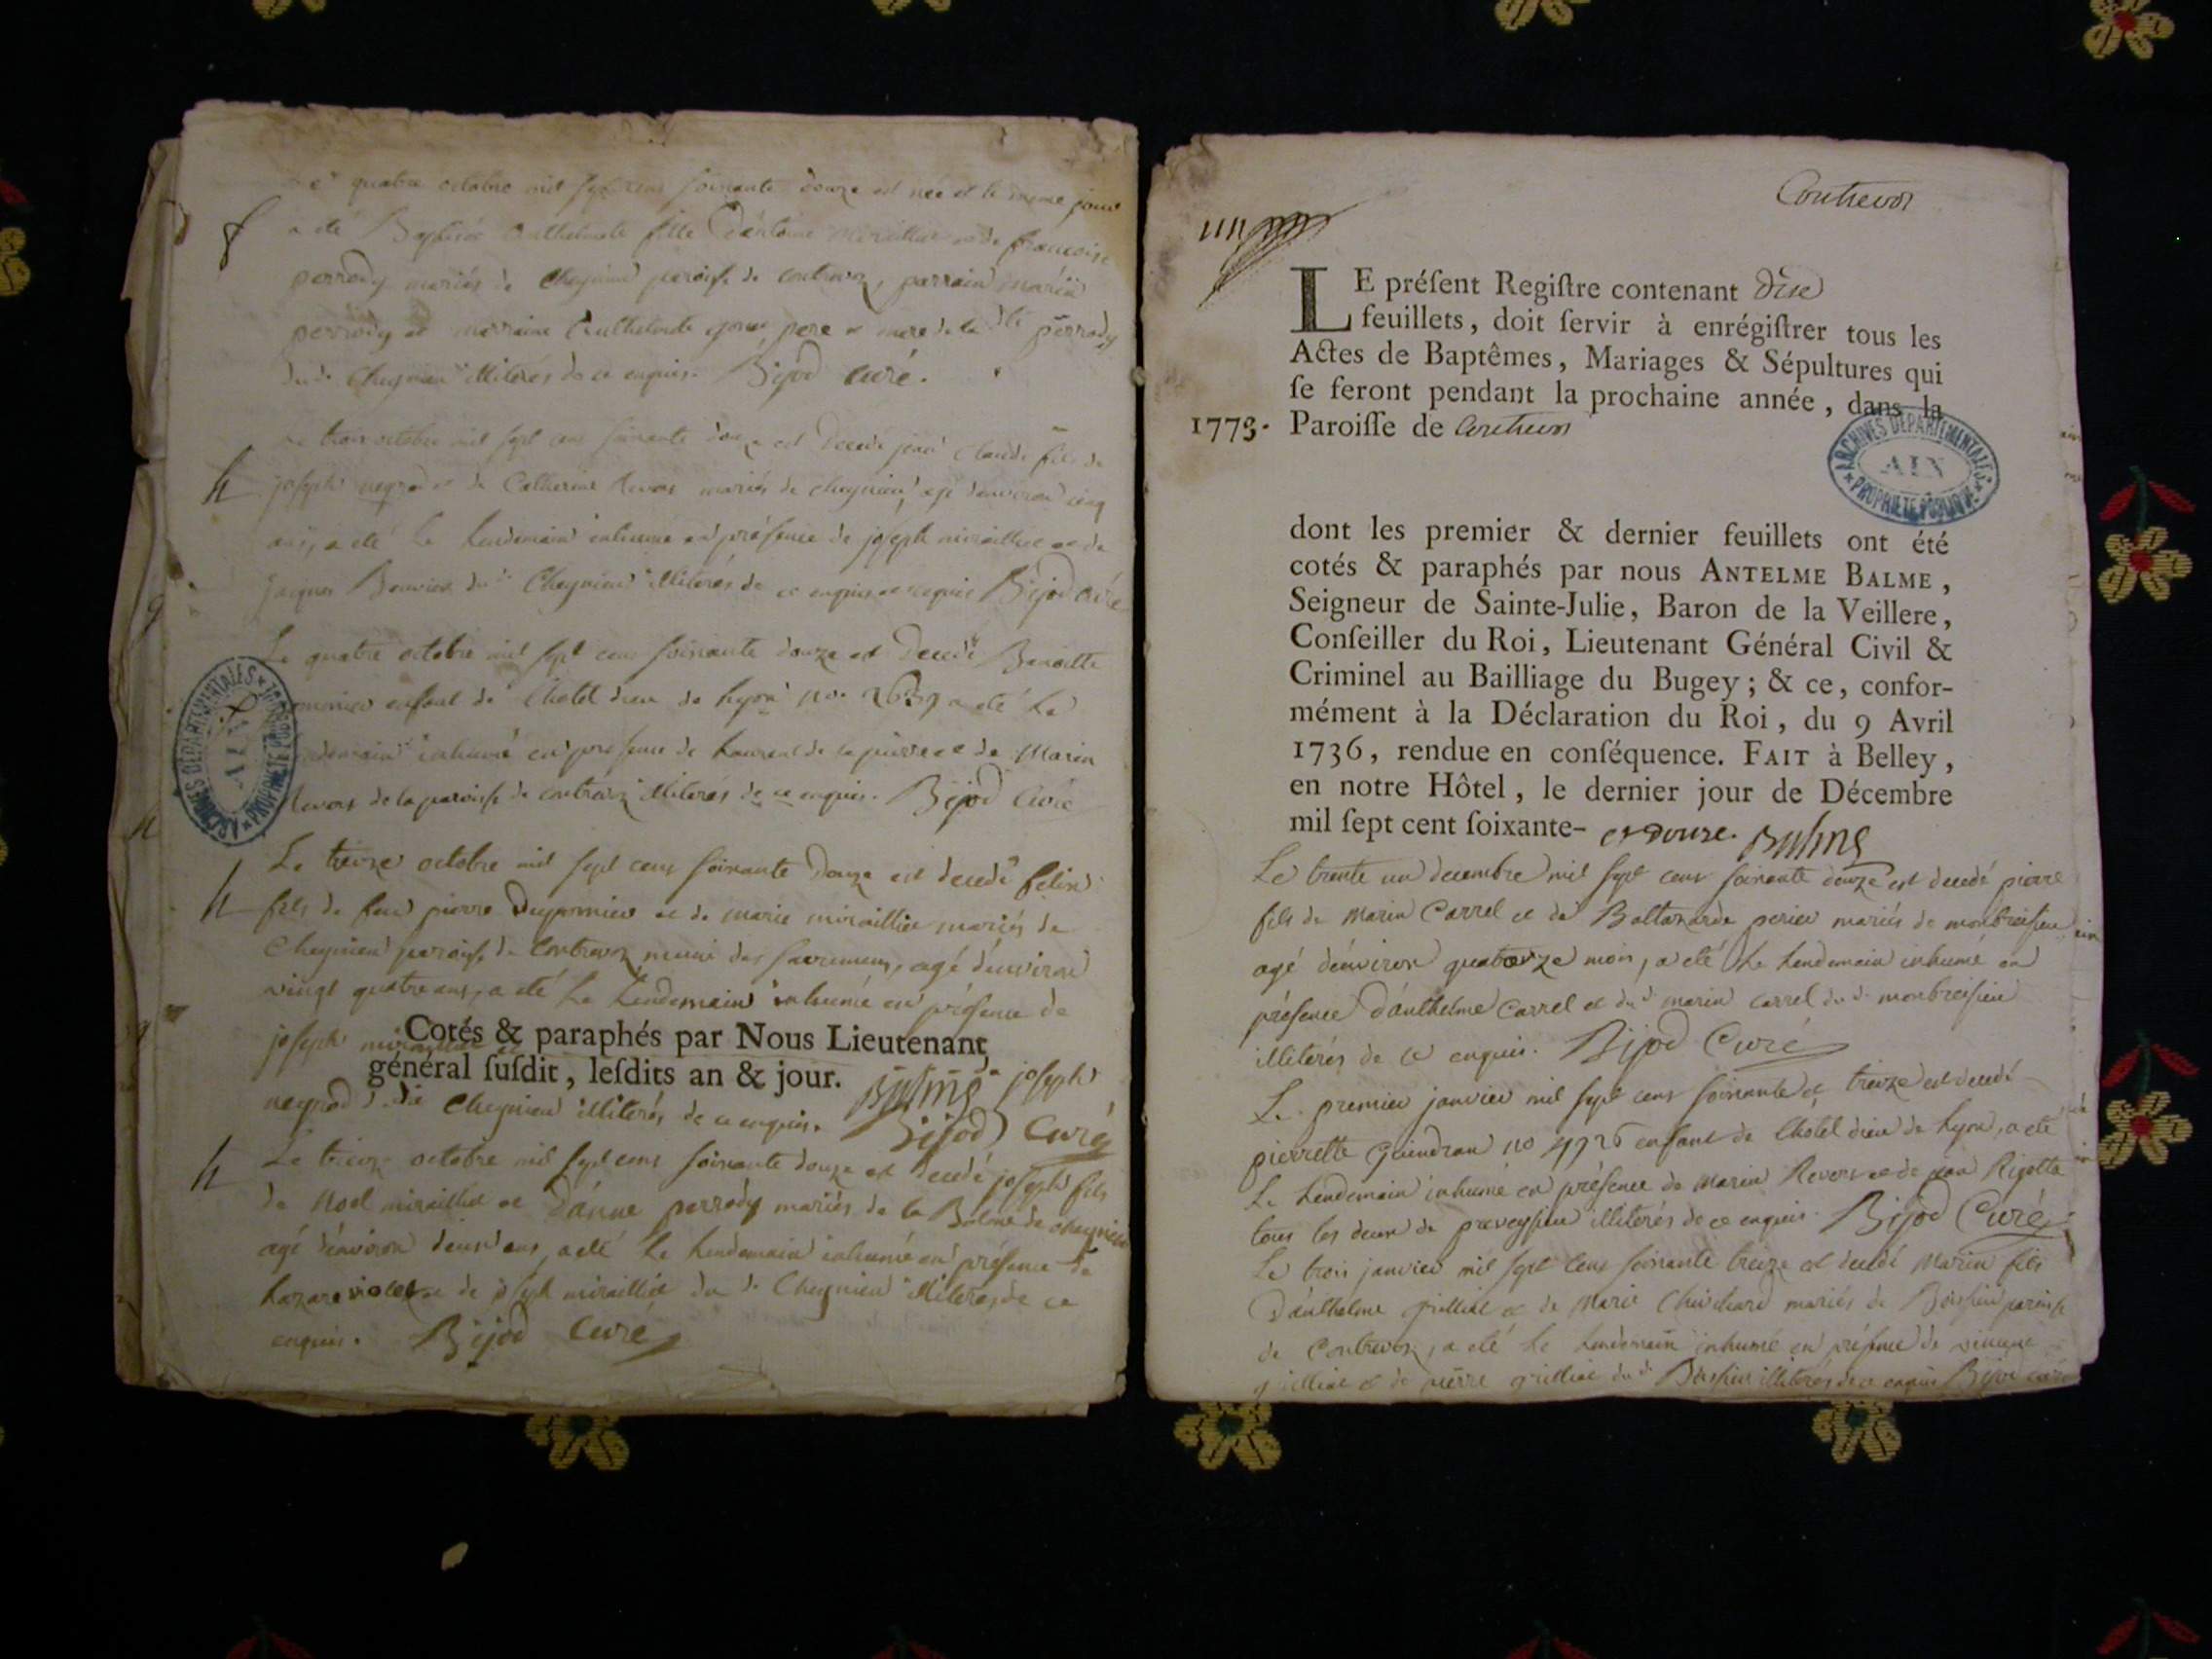 quatre octobre mil sept cens soixante douze est née et le meme jour
a été Baptisée Anthelmette fille d'antoine miraillet et de francoise
perrody mariés de Cheynieu paroisse de contrevoz, parrain marin
perrody et marraine Anthelmette pere et mere de la dte perrody
du d. Cheynieu illiterés de ce enquis. Bijod Curé.
Le trois octobre mil sept cens soixante douze est decedé jean Claude fils de
joseph neyrod et de Catherine Revers mariés de cheynieu, agé d'environ cinq
ans, a été le lendemain inhumé en présence de joseph miraillet et de
jacques Bouvier du d. Cheynieu illiterés de ce enquis et requis Bijod curé
Le quatre octobre mil sept cens soixante douze est decedé Benoitte
enfant de l'hotel dieu de lyon no. 2639 a été le
lendemain inhumé en presence de laurent de lapierre et de Marin
Revers de la paroisse de contrevoz illiterés de ce enquis. Bijod Curé
Le treize octobre mil sept cens soixante douze est decedé felix
fils de feu pierre Dupornieu et de marie miraillier mariés de
Cheynieu paroisse de Contrevoz muni des sacremens, agé d'environ
vingt quatre ans, a été le lendemain inhumé en présence de
joseph miraillet et
Cotés & paraphés par Nous Lieutenant
général susdit, lesdits an & jour. Balme joseph
neyrod du die Cheynieu illiterés de ce enquis. Bijod Curé
Le treize octobre mil sept cens soixante douze est decedé joseph fils
de Noel miraillet et d'anne perrody mariés de la Balme de cheynieu
agé d'environ deux ans, a été le lendemain inhumé en présence de
lazare violet et de joseph miraillet du d. Cheynieu illiterés de ce
enquis. Bijod Curé
Contrevoz
LE présent Registre contenant dix
feuillets, doit servir à enrégistrer tous les
Actes de Baptêmes, Mariages & Sépultures qui
se feront pendant la prochaine année, dans la
1773. Paroisse de Contrevoz
ARCHIVES DÉPARTEMENTALES
AIN
PROPRIÉTÉ PUBLIQUE
dont les premier & dernier feuillets ont été
cotés & paraphés par nous ANTELME BALME,
Seigneur de Sainte-Julie, Baron de la Veillere,
Conseiller du Roi, Lieutenant Général Civil &
Criminel au Bailliage du Bugey; & ce, confor-
mément à la Déclaration du Roi, du 9 Avril
1736, rendue en conséquence. FAIT à Belley,
en notre Hôtel, le dernier jour de Décembre
mil sept cent soixante- et douze. Balme
Le trente un decembre mil sept cens soixante douze est decedé pierre
fils de Marin Carrel et de Baltazarde perier mariés de monbreisieu
agé d'environ quatorze mois, a été le lendemain inhumé en
présence d'anthelme Carrel et du d. marin carrel du d. monbreisieu
illiterés de ce enquis. Bijod Curé
Le premier janvier mil sept cens soixante et treize est decedé
pierrette Guindran no 4726 enfant de l'hotel dieu de lyon, a été
le lendemain inhumé en présence de marin Revers et de jean Rigotte
tous les deux de preveyssieu illiterés de ce enquis. Bijod Curé
Le trois janvier mil sept cens soixante treize est decedé Marin fils
d'anthelme grilliet et de Marie Chuichard mariés de Boissieu paroisse
de Contrevoz, a été le lendemain inhumé en présence de
grilliet et de pierre grilliet du d. Boissieu illiterés de ce enquis Bijod curé